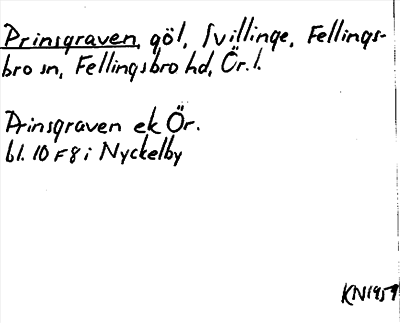 Prinsgraven, göl, Svillinge, Fellings-
bro sn, Fellingsbro hd, Ör. l.
Prinsgraven ek Ör.
bl. 10 F 8 i Nyckelby
KN 1959